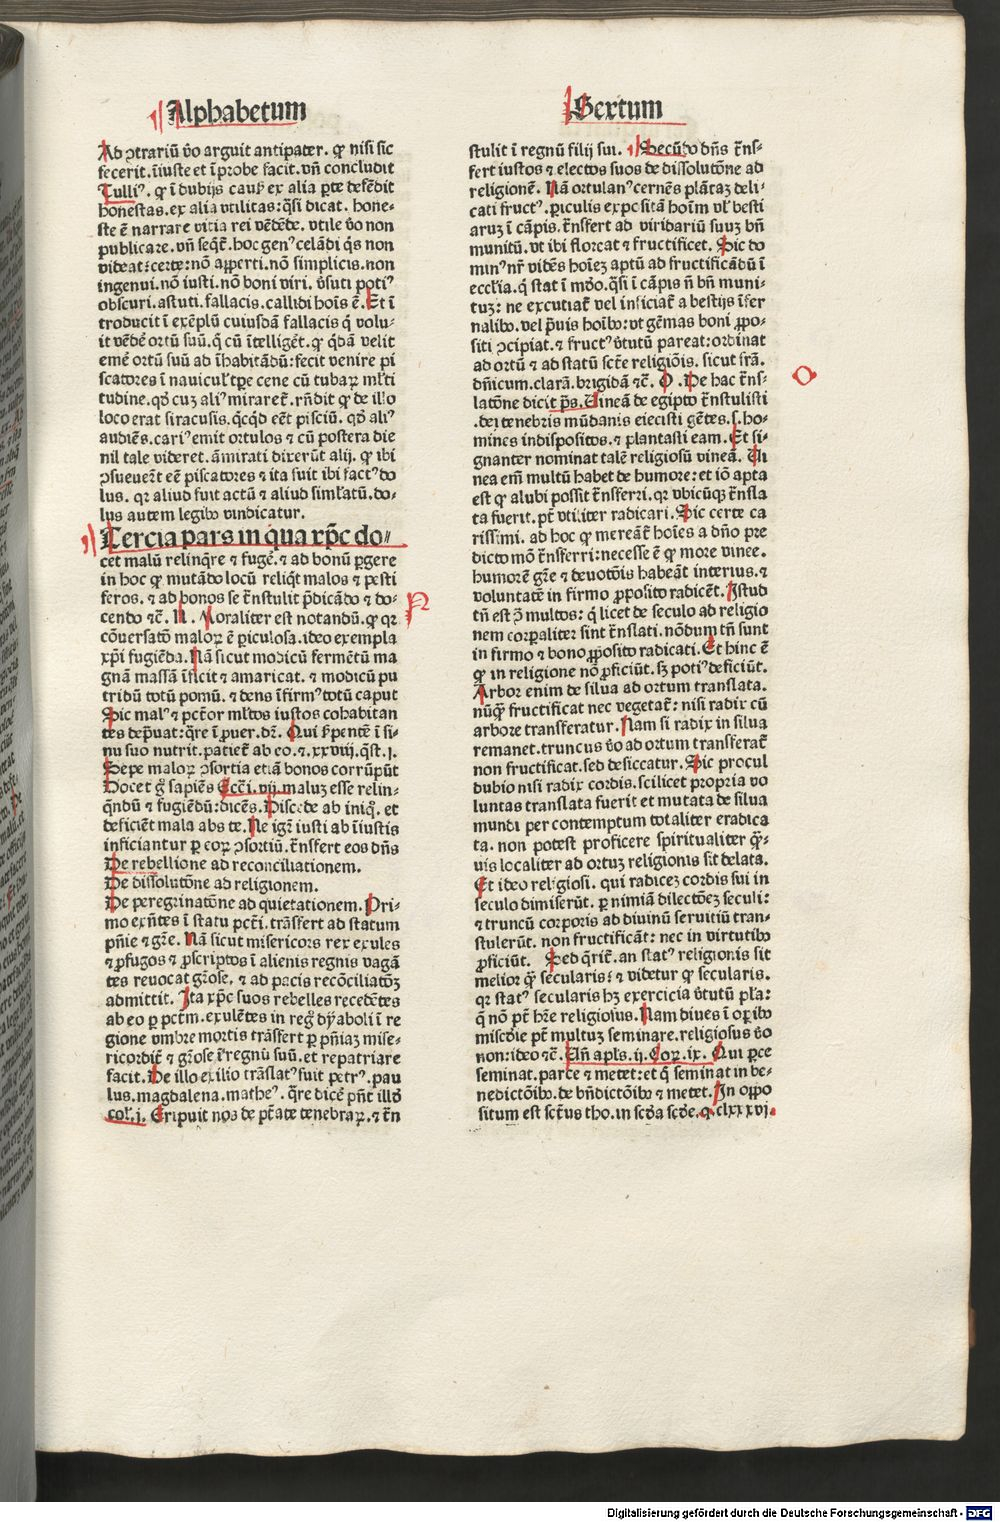 Alphabetum
Sextum
Ad ꝯtrariū v̄o arguit antipater. qꝛ nisi sic
fecerit. īiuste et īprobe facit. vn̄ concludit
Tulliꝰ. qꝛ ī dubijs cauẜ ex alia ꝑte defēdit
honestas. ex alia vtilitas: q̄si dicat. hone⸗
ste ē narrare vitia rei vēdēde. vtile v̄o non
publicare. vn̄ seqt̄. hoc genꝰ celādi q̄s non
videat: certe: nō aꝑperti. nō simplicis. non
ingenui. nō iusti. nō boni viri. v̄suti potiꝰ
obscuri. astuti. fallacis. callidi hoīs ē. Et ī
troducit ī exēplū cuiusdā fallacis q̄ volu⸗
it vēdē ortū suū. q̄ cū ītelligēt. qꝛ q̄dā velit
emē ortū suū ad īhabitādū: fecit venire pi
scatores ī nauiculꝰ tꝑe cene cū tubaꝝ ml̄ti
tudine. qd̓ cuz aliꝰ miraret̄. rn̄dit qꝛ de illo
loco erat siracusis. qcq̄d eēt pisciū. qd̓ aliꝰ
audiēs. cariꝰ emit ortulos ⁊ cū postera die
nil tale videret. āmirati dixerūt alij. qꝛ ibi
ꝯsueuert̄ eē piscatores ⁊ ita fuit ibi factꝰ do
lus. qꝛ aliud fuit actū ⁊ aliud siml̄atū. do⸗
lus autem legibꝰ vindicatur.
Tercia pars in qua xp̄c do⸗
cet malū relinq̄re ⁊ fugē. ⁊ ad bonū ꝑgere
in hoc qꝛ mutādo locū reliq̄t malos ⁊ pesti
feros. ⁊ ad bonos se t̄nstulit p̄dicādo ⁊ do⸗
cendo ⁊c̄. N. Moraliter est notandū. qꝛ qꝛ
cōuersatō maloꝝ ē ꝑiculosa. ideo exempla
xp̄i fugiēda. Nā sicut modicū fermētū ma
gnā massā īficit ⁊ amaricat. ⁊ modicū pu
tridū totū pomū. ⁊ dens īfirmꝰ totū caput
Sic malꝰ ⁊ pctōr ml̄tos iustos cohabitan
tes dep̄uat: q̄re ī ꝓuer. dr̄. Qui ẜpentē ī si⸗
nu suo nutrit. patiet̄ ab eo. ⁊. xxviij. q̄st. j.
Sepe maloꝝ ꝯsortia etiā bonos corrūpūt
Docet g̊ sapiēs Ecci̅. vij. maluz esse relin⸗
q̄ndū ⁊ fugiēdū: dicēs. Discede ab iniqꝰ. et
deficiēt mala abs te. Ne igr̄ iusti ab īiustis
inficiantur ꝑ coꝝ ꝯsortiū. t̄nsfert eos dn̄s
De rebellione ad reconciliationem.
De dissolutōne ad religionem.
De peregrinatōne ad quietationem. Pri⸗
mo exn̄tes ī statu pctī. trāsfert ad statum
pn̄ie ⁊ gr̄e. Nā sicut misericors rex exules
⁊ ꝓfugos ⁊ ꝓscriptos ī alienis regnis vagā
tes reuocat gr̄ose. ⁊ ad pacis recōciliatōꝫ
admittit. Ita xp̄c suos rebelles recedētes
ab eo ꝑ pctm̄. exulētes in regꝰ dyaboli ī re
gione vmbre mortis trāsfert ꝑ pn̄iaꝫ mise⸗
ricordit̄ ⁊ gr̄ose ī regnū suū. et repatriare
facit. De illo exilio trāslatꝰ fuit petrꝰ. pau
lus. magdalena. matheꝰ. q̄re dicē pn̄t illd̓
col. j. Eripuit nos de ptāte tenebraꝝ. ⁊ t̄n
stulit ī regnū filij sui. Secūdo dn̄s t̄ns⸗
fert iustos ⁊ electos suos de dissolutōne ad
religionē. Nā ortulanꝰ cernēs plātaꝫ deli⸗
cati fructꝰ. ꝑiculis expositā hoīm vl̓ besti
aruꝫ ī cāpis. t̄nsfert ad viridariū suuꝫ bn̄
munitū. vt ibi floreat ⁊ fructificet. Sic do
minꝰ nr̄ vidēs hoīeꝫ aptū ad fructificādū ī
eccl̄ia. q̄ stat ī mūdo. q̄si ī cāpis n̄ bn̄ muni⸗
tuꝫ: ne excutiat̄ vel inficiat̄ a bestijs īfer
nalibꝰ. vel p̄uis hoībꝰ: vt gēmas boni ꝓpo⸗
siti ꝯcipiat. ⁊ fructꝰ v̄tutū pareat: ordinat
ad ortū ⁊ ad statū sctē religiōis. sicut frā.
dn̄icum. clarā. brigidā ⁊c̄. O. De hac t̄ns⸗
latōne dicit p̄s. Uineā de egipto t̄nstulisti
.dei tenebris mūdanis eiecisti gētes. s. ho⸗
mines indispositos. ⁊ plantasti eam. Et si⸗
gnanter nominat talē religiosū vineā. Ui
nea em̄ multū habet de humore: et iō apta
est qꝛ alubi possit t̄nsferri. qꝛ vbicūqꝫ t̄nsla
ta fuerit. pt̄ vtiliter radicari. Sic certe ca
rissimi. ad hoc qꝛ mereāt̄ hoīes a dn̄o pre
dicto mō t̄nsferri: necesse ē qꝛ more vinee.
humorē gr̄e ⁊ deuotōis habeāt interius. ⁊
voluntatē in firmo ꝓposito radicēt. Istud
tn̄ est ꝯ̄ multos: q̄ licet de seculo ad religio
nem corꝑaliter sint t̄nslati. nōdum tn̄ sunt
in firmo ⁊ bono ꝓposito radicati. Et hinc ē
qꝛ in religione nō ꝓficiūt. sꝫ potiꝰ deficiūt.
Arbor enim de silua ad ortum translata.
nūqꝫ fructificat nec vegetat̄: nisi radix cū
arbore transferatur. Nam si radix in silua
remanet. truncus v̄o ad ortum transferat̄
non fructificat. sed desiccatur. Sic procul
dubio nisi radix cordis. scilicet propria vo
luntas translata fuerit et mutata de silua
mundi per contemptum totaliter eradica
ta. non potest proficere spiritualiter qꝫ⸗
uis localiter ad ortuꝫ religionis sit delata.
Et ideo religiosi. qui radiceꝫ cordis sui in
seculo dimiserūt. ꝑ nimiā dilectōeꝫ seculi:
⁊ truncū corporis ad diuinū seruitiū tran⸗
stulerūt. non fructificāt: nec in virtutibꝰ
ꝓficiūt. Sed q̄rit̄. an statꝰ religionis sit
melior qꝫ secularis: ⁊ videtur qꝛ secularis.
qꝛ statꝰ secularis hꝫ exercicia v̄tutū pl̄a:
q̄ nō pt̄ hr̄e religiosus. Nam diues ī oꝑibꝰ
miscd̓ie pt̄ multuꝫ seminare. religiosus v̄o
non: ideo ⁊c̄. Un̄ apl̄s. ij. Coꝝ. ix. Qui ꝑce
seminat. parce ⁊ metet: et q̄ seminat in be⸗
nedictōibꝰ. de bn̄dictōibꝰ ⁊ metet. In oppo
situm est sctūs tho. in scd̓a scd̓e. q. clxxxvj.
N
O
Digitalisierung gefördert durch die Deutsche Forschungsgemeinschaft - DFG